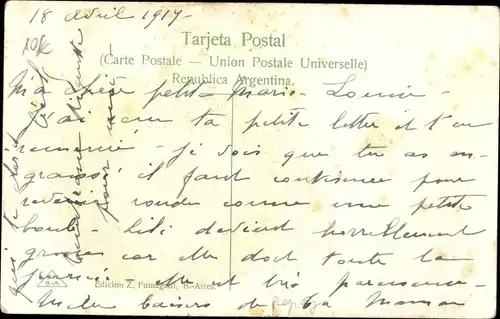 18 avril 1917.
10k
Tarjeta Postal
(Carte Postale — Union Postale Universelle)
Republica Argentina.
Ma chère petite Marie-Louise
j'ai reçu ta petite lettre et t'en
remercie - je vois que tu as en-
graissé il faut continuer pour
revenir ronde comme une petite
boule. Lili devient horriblement
grosse car elle dort toute la
journée - elle est très paresseuse.
Mille baisers de Maman
qui te
pour
Edicion Z. Fumagalli, B. Aires.